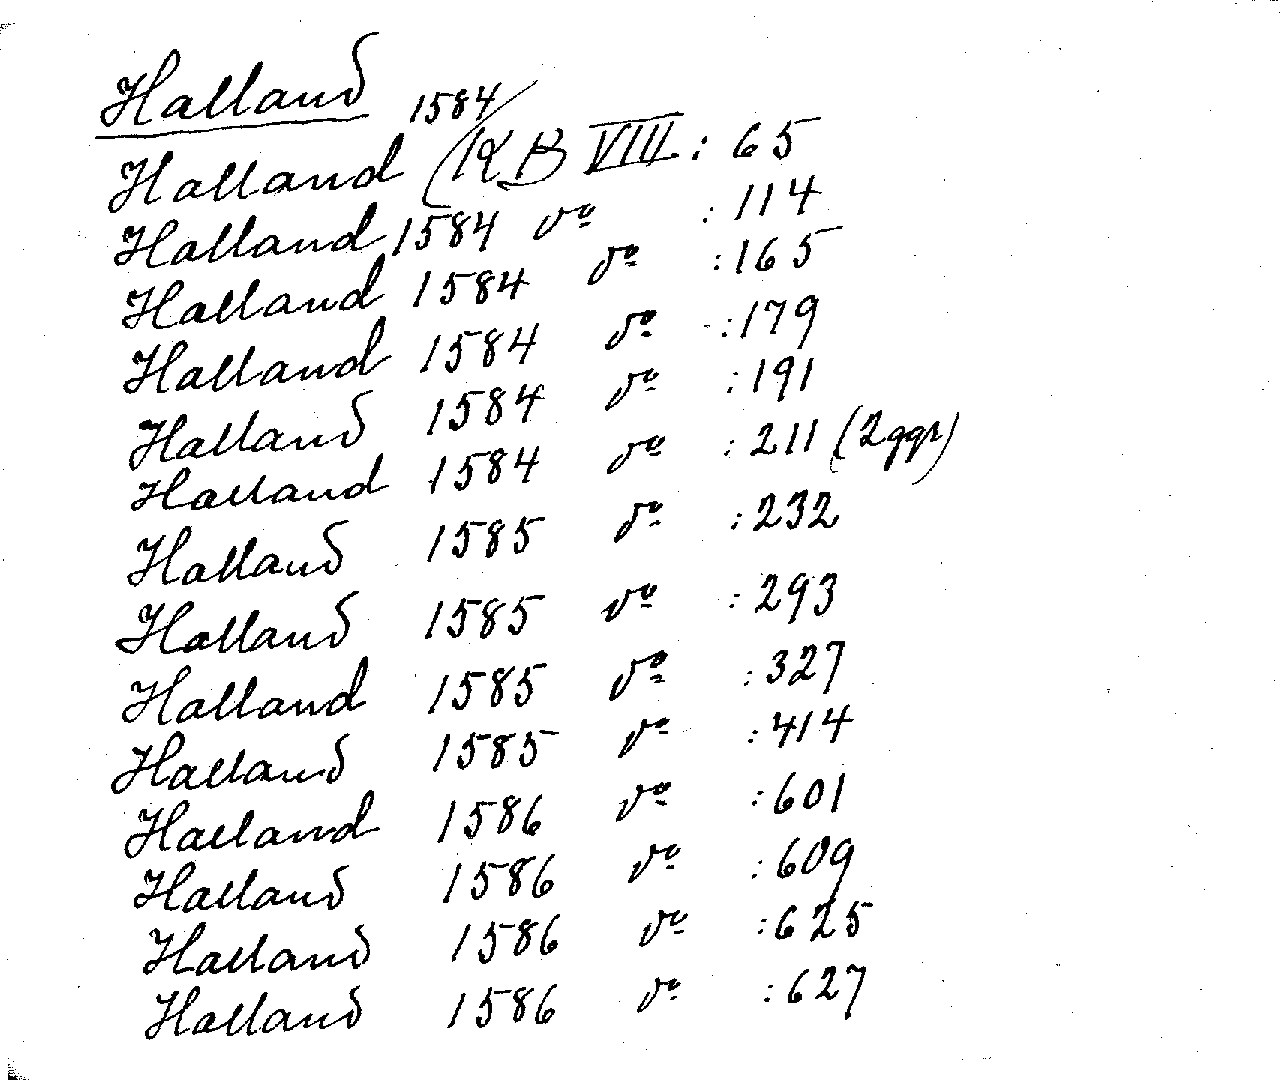 Halland
Halland 1584 (KB VIII : 65
Halland 1584 do : 114
Halland 1584 do : 165
Halland 1584 do : 179
Halland 1584 do : 191
Halland 1584 do : 211 (2ggr)
Halland 1585 do : 232
Halland 1585 do : 293
Halland 1585 do : 327
Halland 1585 do : 414
Halland 1586 do : 601
Halland 1586 do : 609
Halland 1586 do : 625
Halland 1586 do : 627